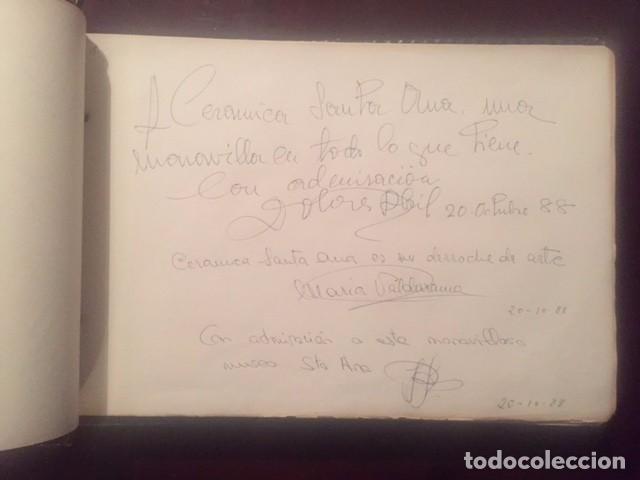 A Ceramica Santa Ana, una
maravilla en todo lo que tiene.
Con admiración
Dolores Abril 20 Octubre 88
Ceramica Santa Ana es un derroche de arte
Maria Valderrama
20-10-88
Con admiración a este maravilloso
museo Sta Ana
20-10-88
todocoleccion